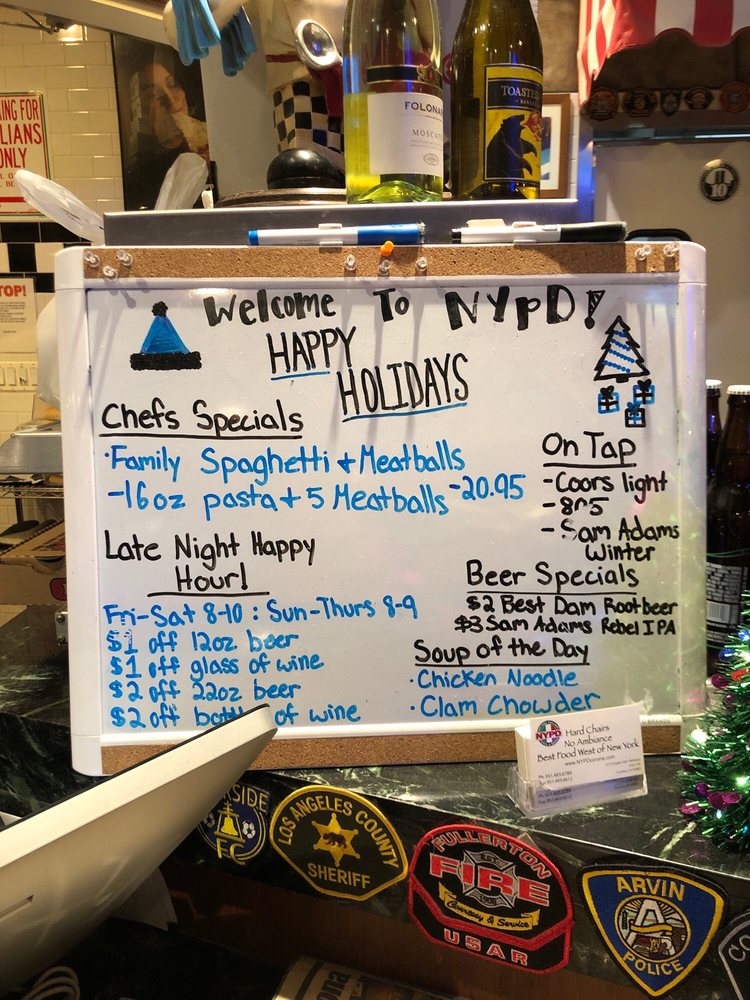 KING FOR
LIANS
ONLY
TOP!
FOLONA
MOSCATO
TOASTED
10
Welcome To NYPD!
HAPPY
HOLIDAYS
Chefs Specials
·Family Spaghetti + Meatballs
-16oz pasta + 5 Meatballs -20.95
On Tap
-Coors light
-805
-Sam Adams
Winter
Late Night Happy
Hour!
Fri-Sat 8-10 : Sun-Thurs 8-9
$1 off 12oz beer
$1 off glass of wine
$2 off 22oz beer
$2 off bottle of wine
Beer Specials
$2 Best Dam Rootbeer
$3 Sam Adams Rebel IPA
Soup of the Day
·Chicken Noodle
·Clam Chowder
NYPD
Hard Chairs
No Ambiance
Best Food West of New York
www.NYPDcorona.com
SIDE
FC
LOS ANGELES COUNTY
SHERIFF
FULLERTON
FIRE
Courtesy & Service
USAR
ARVIN
A
POLICE
CO